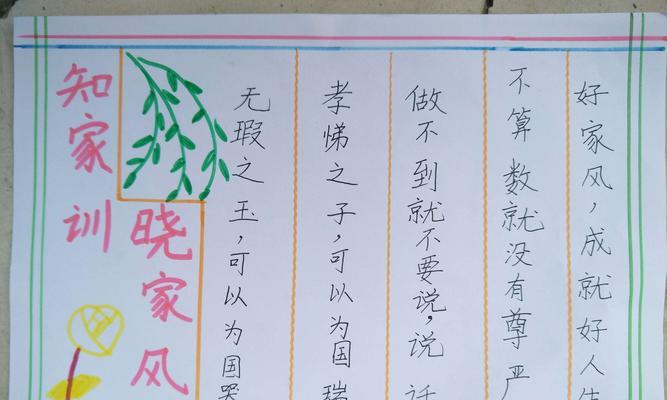 知家训
晓家风
无瑕之玉，可以为国器
孝悌之子，可以为国瑞
做不到就不要说，说话
不算数就没有尊严
好家风，成就好人生